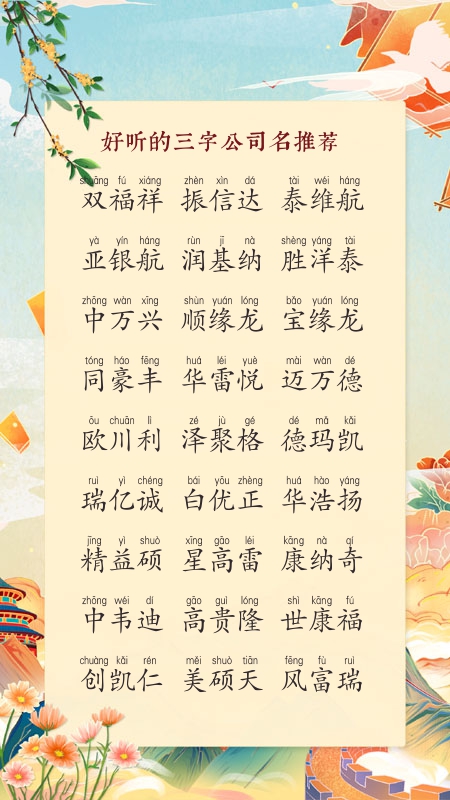 好听的三字公司名推荐
shuāng fú xiáng zhèn xìn dá tài wéi háng
双福祥 振信达 泰维航
yà yín háng rùn jī nà shèng yáng tài
亚银航 润基纳 胜洋泰
zhōng wàn xīng shùn yuán lóng bǎo yuán lóng
中万兴 顺缘龙 宝缘龙
tóng háo fēng huá léi yuè mài wàn dé
同豪丰 华雷悦 迈万德
ōu chuān lì zé jù gé dé mǎ kǎi
欧川利 泽聚格 德玛凯
ruì yì chéng bái yōu zhèng huá hào yáng
瑞亿诚 白优正 华浩扬
jīng yì shuò xīng gāo léi kāng nà qí
精益硕 星高雷 康纳奇
zhōng wéi dí gāo guì lóng shì kāng fú
中韦迪 高贵隆 世康福
chuàng kǎi rén měi shuò tiān fēng fù ruì
创凯仁 美硕天 风富瑞